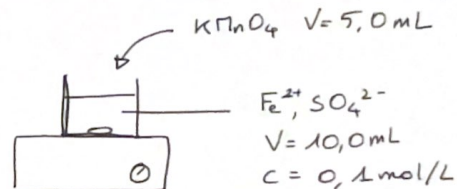 KMnO₄ V = 5,0 mL
Fe²⁺, SO₄²⁻
V = 10,0 mL
C = 0,1 mol/L